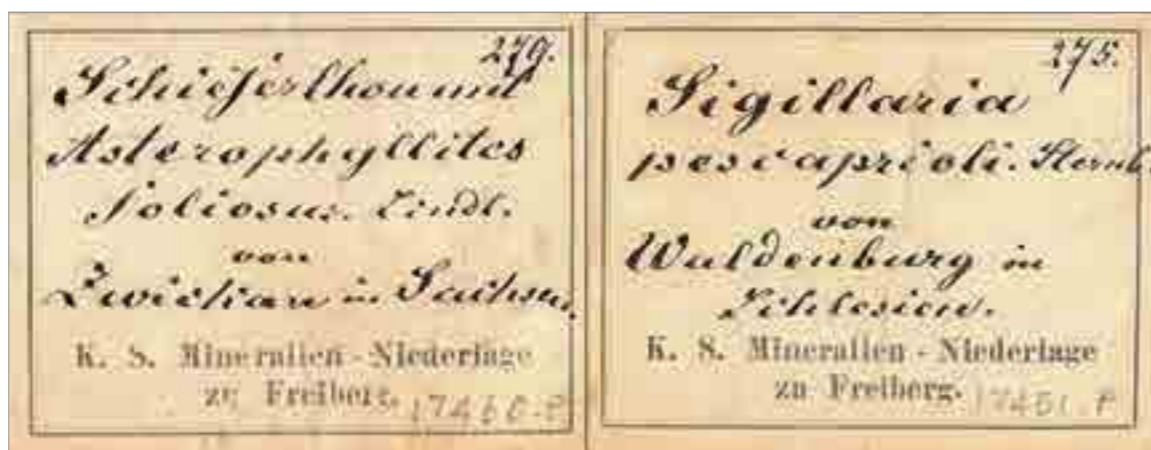 279.
Schieferthon mit
Asterophyllites
foliosus. Lindl.
von
Zwickau in Sachsen.
K. S. Mineralien - Niederlage
zu Freiberg.
275.
Sigillaria
pes capreoli. Sternb.
von
Waldenburg in
Schlesien.
K. S. Mineralien - Niederlage
zu Freiberg.